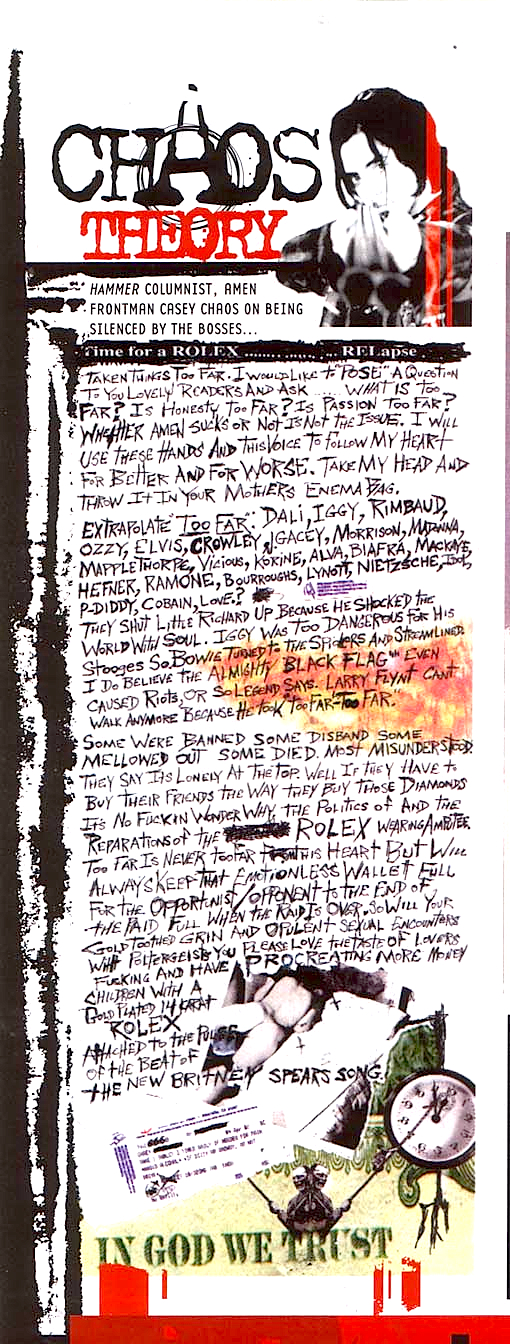 CHAOS
THEORY
HAMMER COLUMNIST, AMEN
FRONTMAN CASEY CHAOS ON BEING
SILENCED BY THE BOSSES...
Time for a ROLEX ........ ...... ... RELapse
TAKEN THINGS TOO FAR. I WOULD LIKE TO "POSE" A QUESTION
TO YOU LOVELY READERS AND ASK .... WHAT IS TOO
FAR? IS HONESTY TOO FAR? IS PASSION TOO FAR?
WHETHER AMEN SUCKS OR NOT IS NOT THE ISSUE. I WILL
USE THESE HANDS AND THIS VOICE TO FOLLOW MY HEART
FOR BETTER AND FOR WORSE. TAKE MY HEAD AND
THROW IT IN YOUR MOTHERS ENEMA BAG.
EXTRAPOLATE "TOO FAR": DALI, IGGY, RIMBAUD,
OZZY, ELVIS, CROWLEY, JGACEY, MORRISON, MADONNA,
MAPPLETHORPE, VICIOUS, KOKINE, ALVA, BIAFRA, MACKAYE,
HEFNER, RAMONE, BOURROUGHS, LYNOTT, NIETZSCHE, IDOL,
P-DIDDY, COBAIN, LOVE?
THEY SHUT LITTLE RICHARD UP BECAUSE HE SHOCKED THE
WORLD WITH SOUL. IGGY WAS TOO DANGEROUS FOR HIS
STOOGES SO BOWIE TURNED TO THE SPIDERS AND STREAMLINED.
I DO BELIEVE THE ALMIGHTY "BLACK FLAG" EVEN
CAUSED RIOTS, OR SO LEGEND SAYS. LARRY FLYNT CANT
WALK ANYMORE BECAUSE HE TOOK "TOO FAR-TOO FAR."
SOME WERE BANNED SOME DISBAND SOME
MELLOWED OUT SOME DIED. MOST MISUNDERSTOOD
THEY SAY ITS LONELY AT THE TOP. WELL IF THEY HAVE TO
BUY THEIR FRIENDS THE WAY THEY BUY THOSE DIAMONDS
IT'S NO FUCKIN WONDER WHY. THE POLITICS OF AND THE
REPARATIONS OF THE ROLEX WEARING AMPUTEE.
TOO FAR IS NEVER TOO FAR THIS HEART BUT WILL
ALWAYS KEEP THAT EMOTIONLESS WALLET FULL
FOR THE OPPORTUNIST/OPPONENT TO THE END OF
THE PAID FULL WHEN THE RAID IS OVER. SO WILL YOUR
GOLD TOOTHED GRIN AND OPULENT SEXUAL ENCOUNTERS
WITH POLTERGEISTS YOU PLEASE LOVE THE TASTE OF LOVERS
FUCKING AND HAVE PROCREATING MORE MONEY
CHILDREN WITH A
GOLD PLATED 14 KARAT
ROLEX
ATTACHED TO THE PULSE
OF THE BEAT OF
THE NEW BRITNEY SPEARS SONG.
666
IN GOD WE TRUST